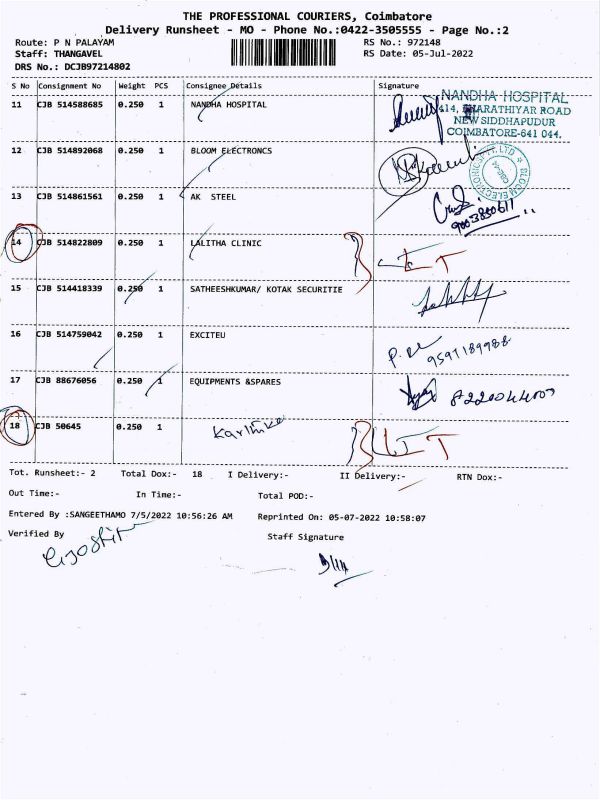 THE PROFESSIONAL COURIERS, Coimbatore
Delivery Runsheet - MO - Phone No.:0422-3505555 - Page No.:2
Route: P N PALAYAM
RS No.: 972148
Staff: THANGAVEL
RS Date: 05-Jul-2022
DRS No.: DCJB97214802
S No Consignment No Weight PCS Consignee Details Signature
11 CJB 514588685 0.250 1 NANDHA HOSPITAL
NANDHA HOSPITAL
414, BHARATHIYAR ROAD
NEW SIDDHAPUDUR
COIMBATORE-641 044.
12 CJB 514892068 0.250 1 BLOOM ELECTRONCS
13 CJB 514861561 0.250 1 AK STEEL
9003850611
14 CJB 514822809 0.250 1 LALITHA CLINIC
15 CJB 514418339 0.250 1 SATHEESHKUMAR/ KOTAK SECURITIE
16 CJB 514759042 0.250 1 EXCITEU
9591189988
17 CJB 88676056 0.250 1 EQUIPMENTS &SPARES
18 CJB 50645 0.250 1 Karthika
Tot. Runsheet:- 2 Total Dox:- 18 I Delivery:- II Delivery:- RTN Dox:-
Out Time:- In Time:- Total POD:-
Entered By :SANGEETHAMO 7/5/2022 10:56:26 AM Reprinted On: 05-07-2022 10:58:07
Verified By Staff Signature